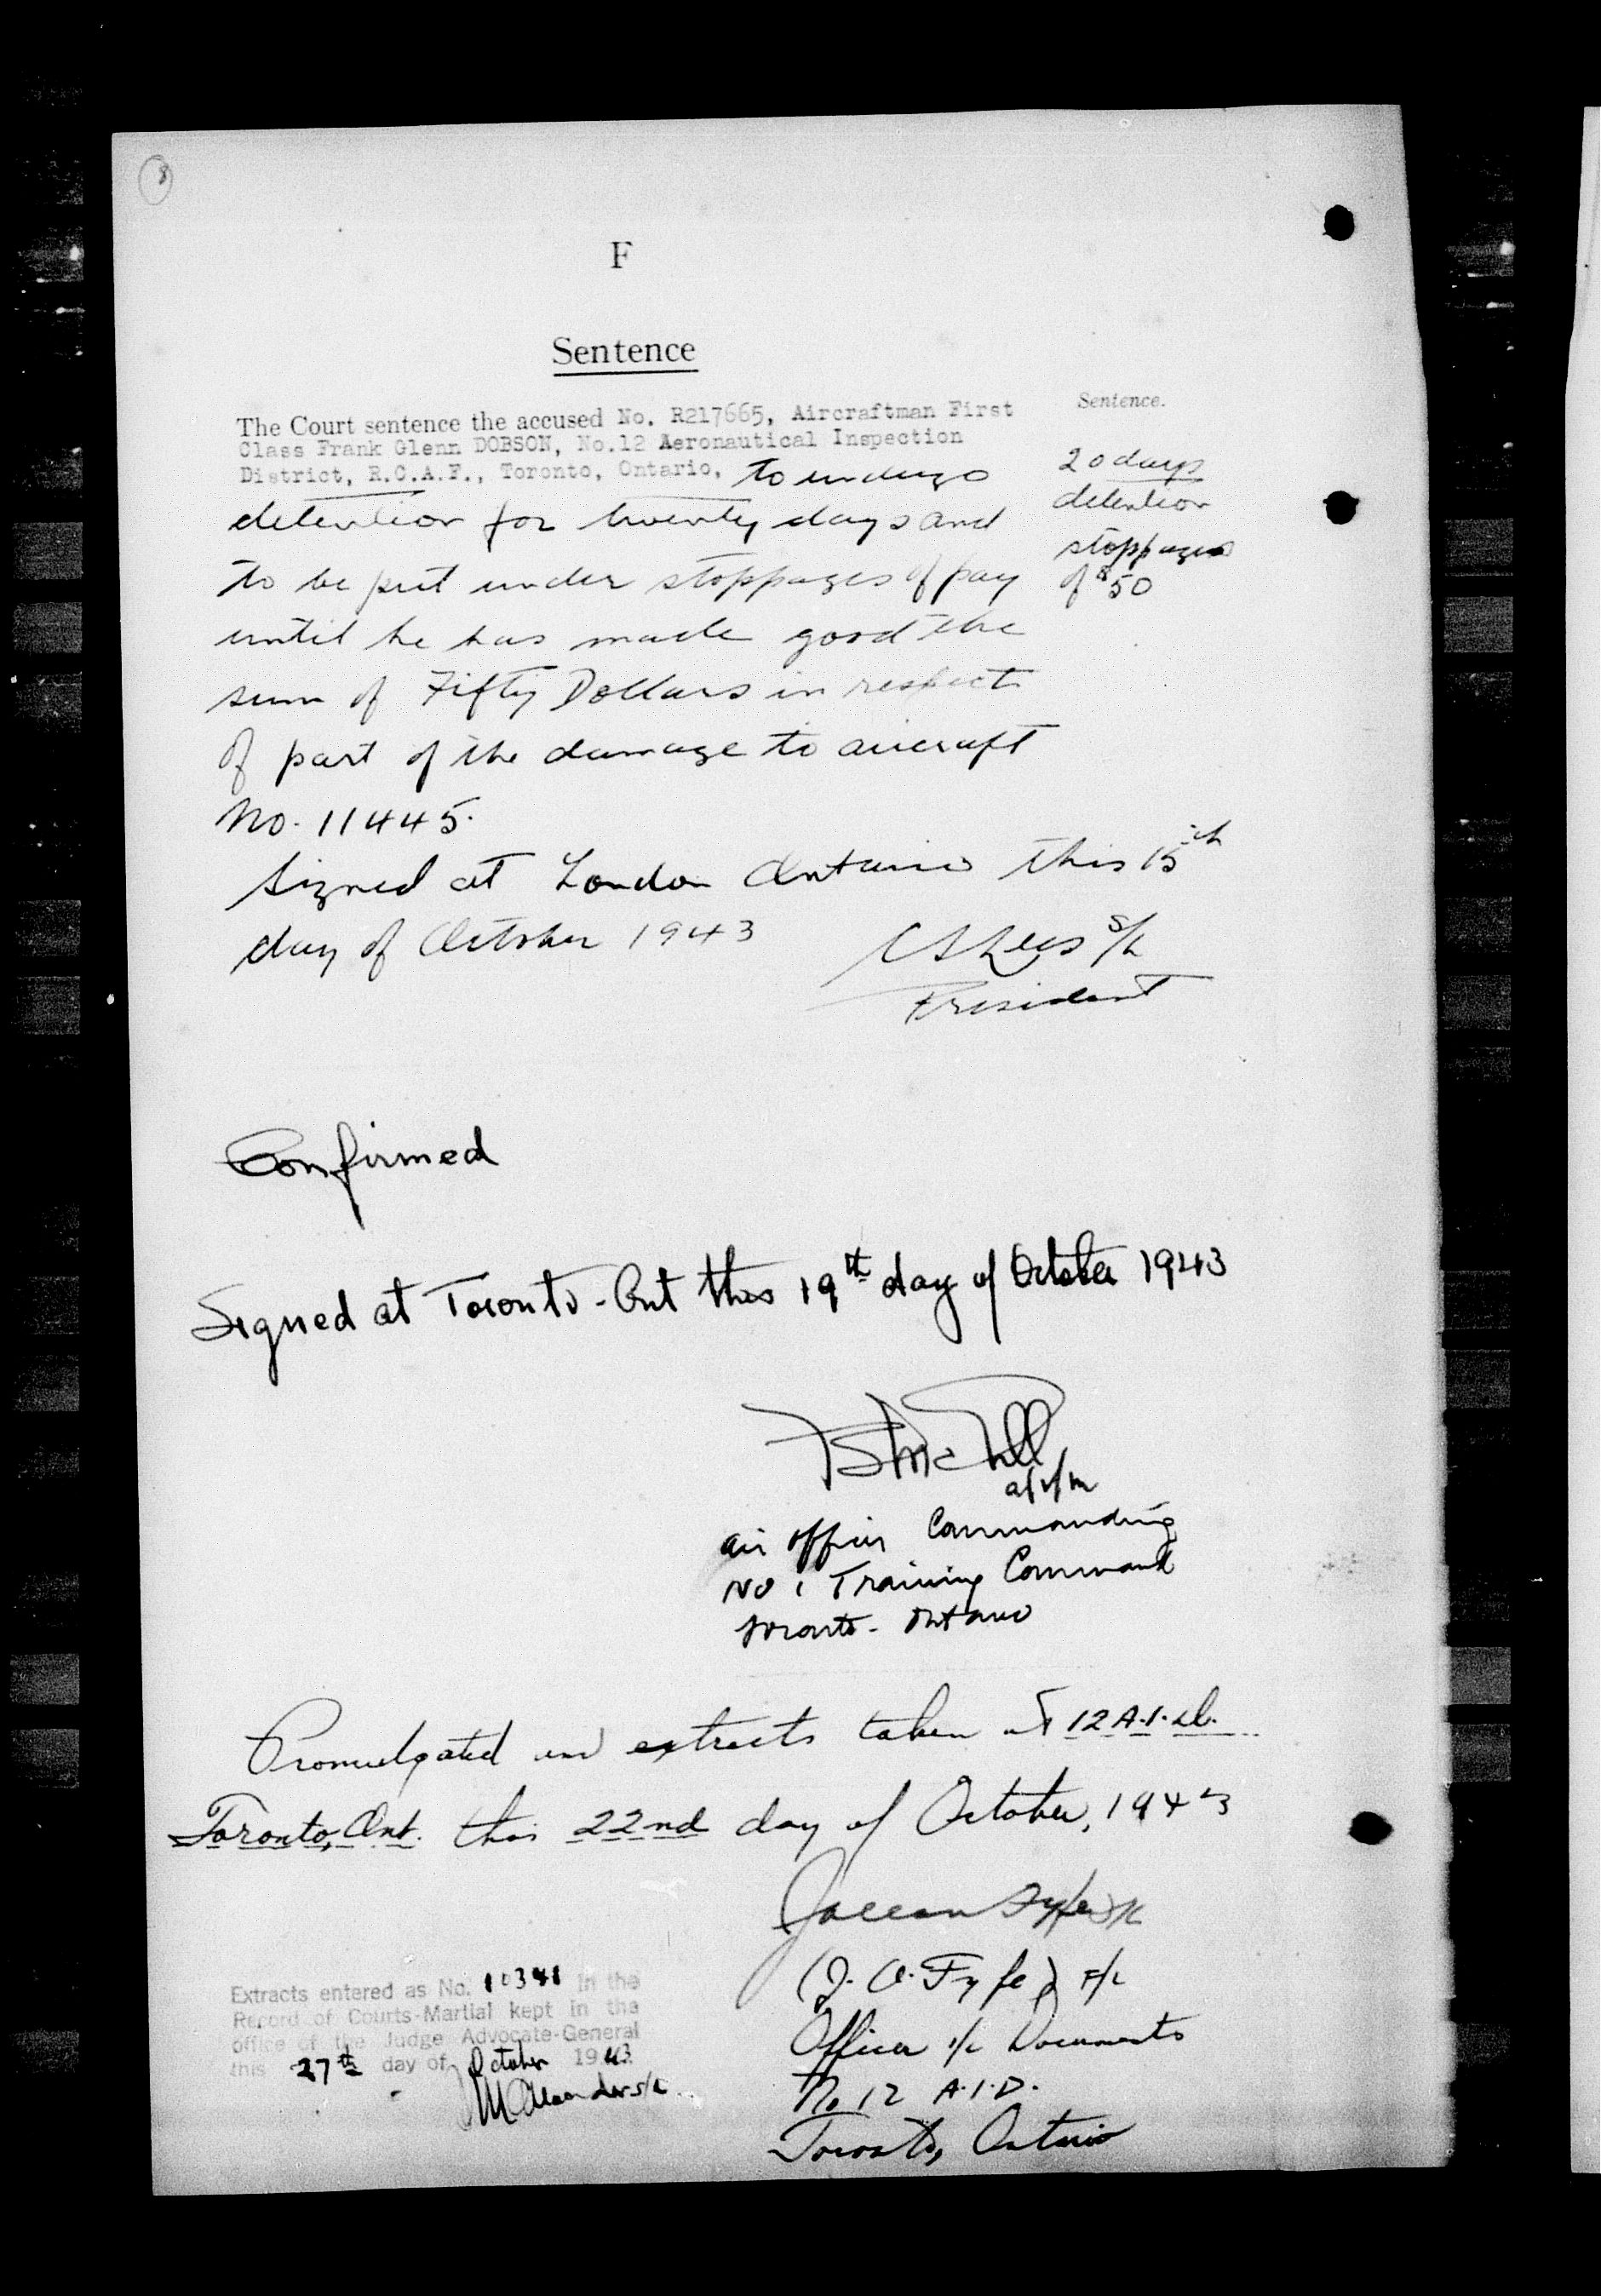 8
F
Sentence
The Court sentence the accused No. R217665, Aircraftman First
Class Frank Glenn DOBSON, No.12 Aeronautical Inspection
District, R.C.A.F., Toronto, Ontario, to undergo
detention for twenty days and
to be put under stoppages of pay
until he has made good the
sum of Fifty Dollars in respect
of part of the damage to aircraft
No. 11445.
Sentence.
20 days
detention
stoppages
of $50
Signed at London Ontario this 15th
day of October 1943
S/L
President
Confirmed
Signed at Toronto - Ont this 19th day of October 1943
a/v/m
Air Officer Commanding
No 1 Training Command
Toronto - Ontario
Promulgated and extracts taken at 12 A.I.D.
Toronto, Ont. this 22nd day of October, 1943
(J. O. Fyfe) F/L
Officer i/c Documents
No 12 A.I.D.
Toronto, Ontario
Extracts entered as No. 10341 in the
Record of Courts-Martial kept in the
office of the Judge Advocate-General
this 27th day of October 1943